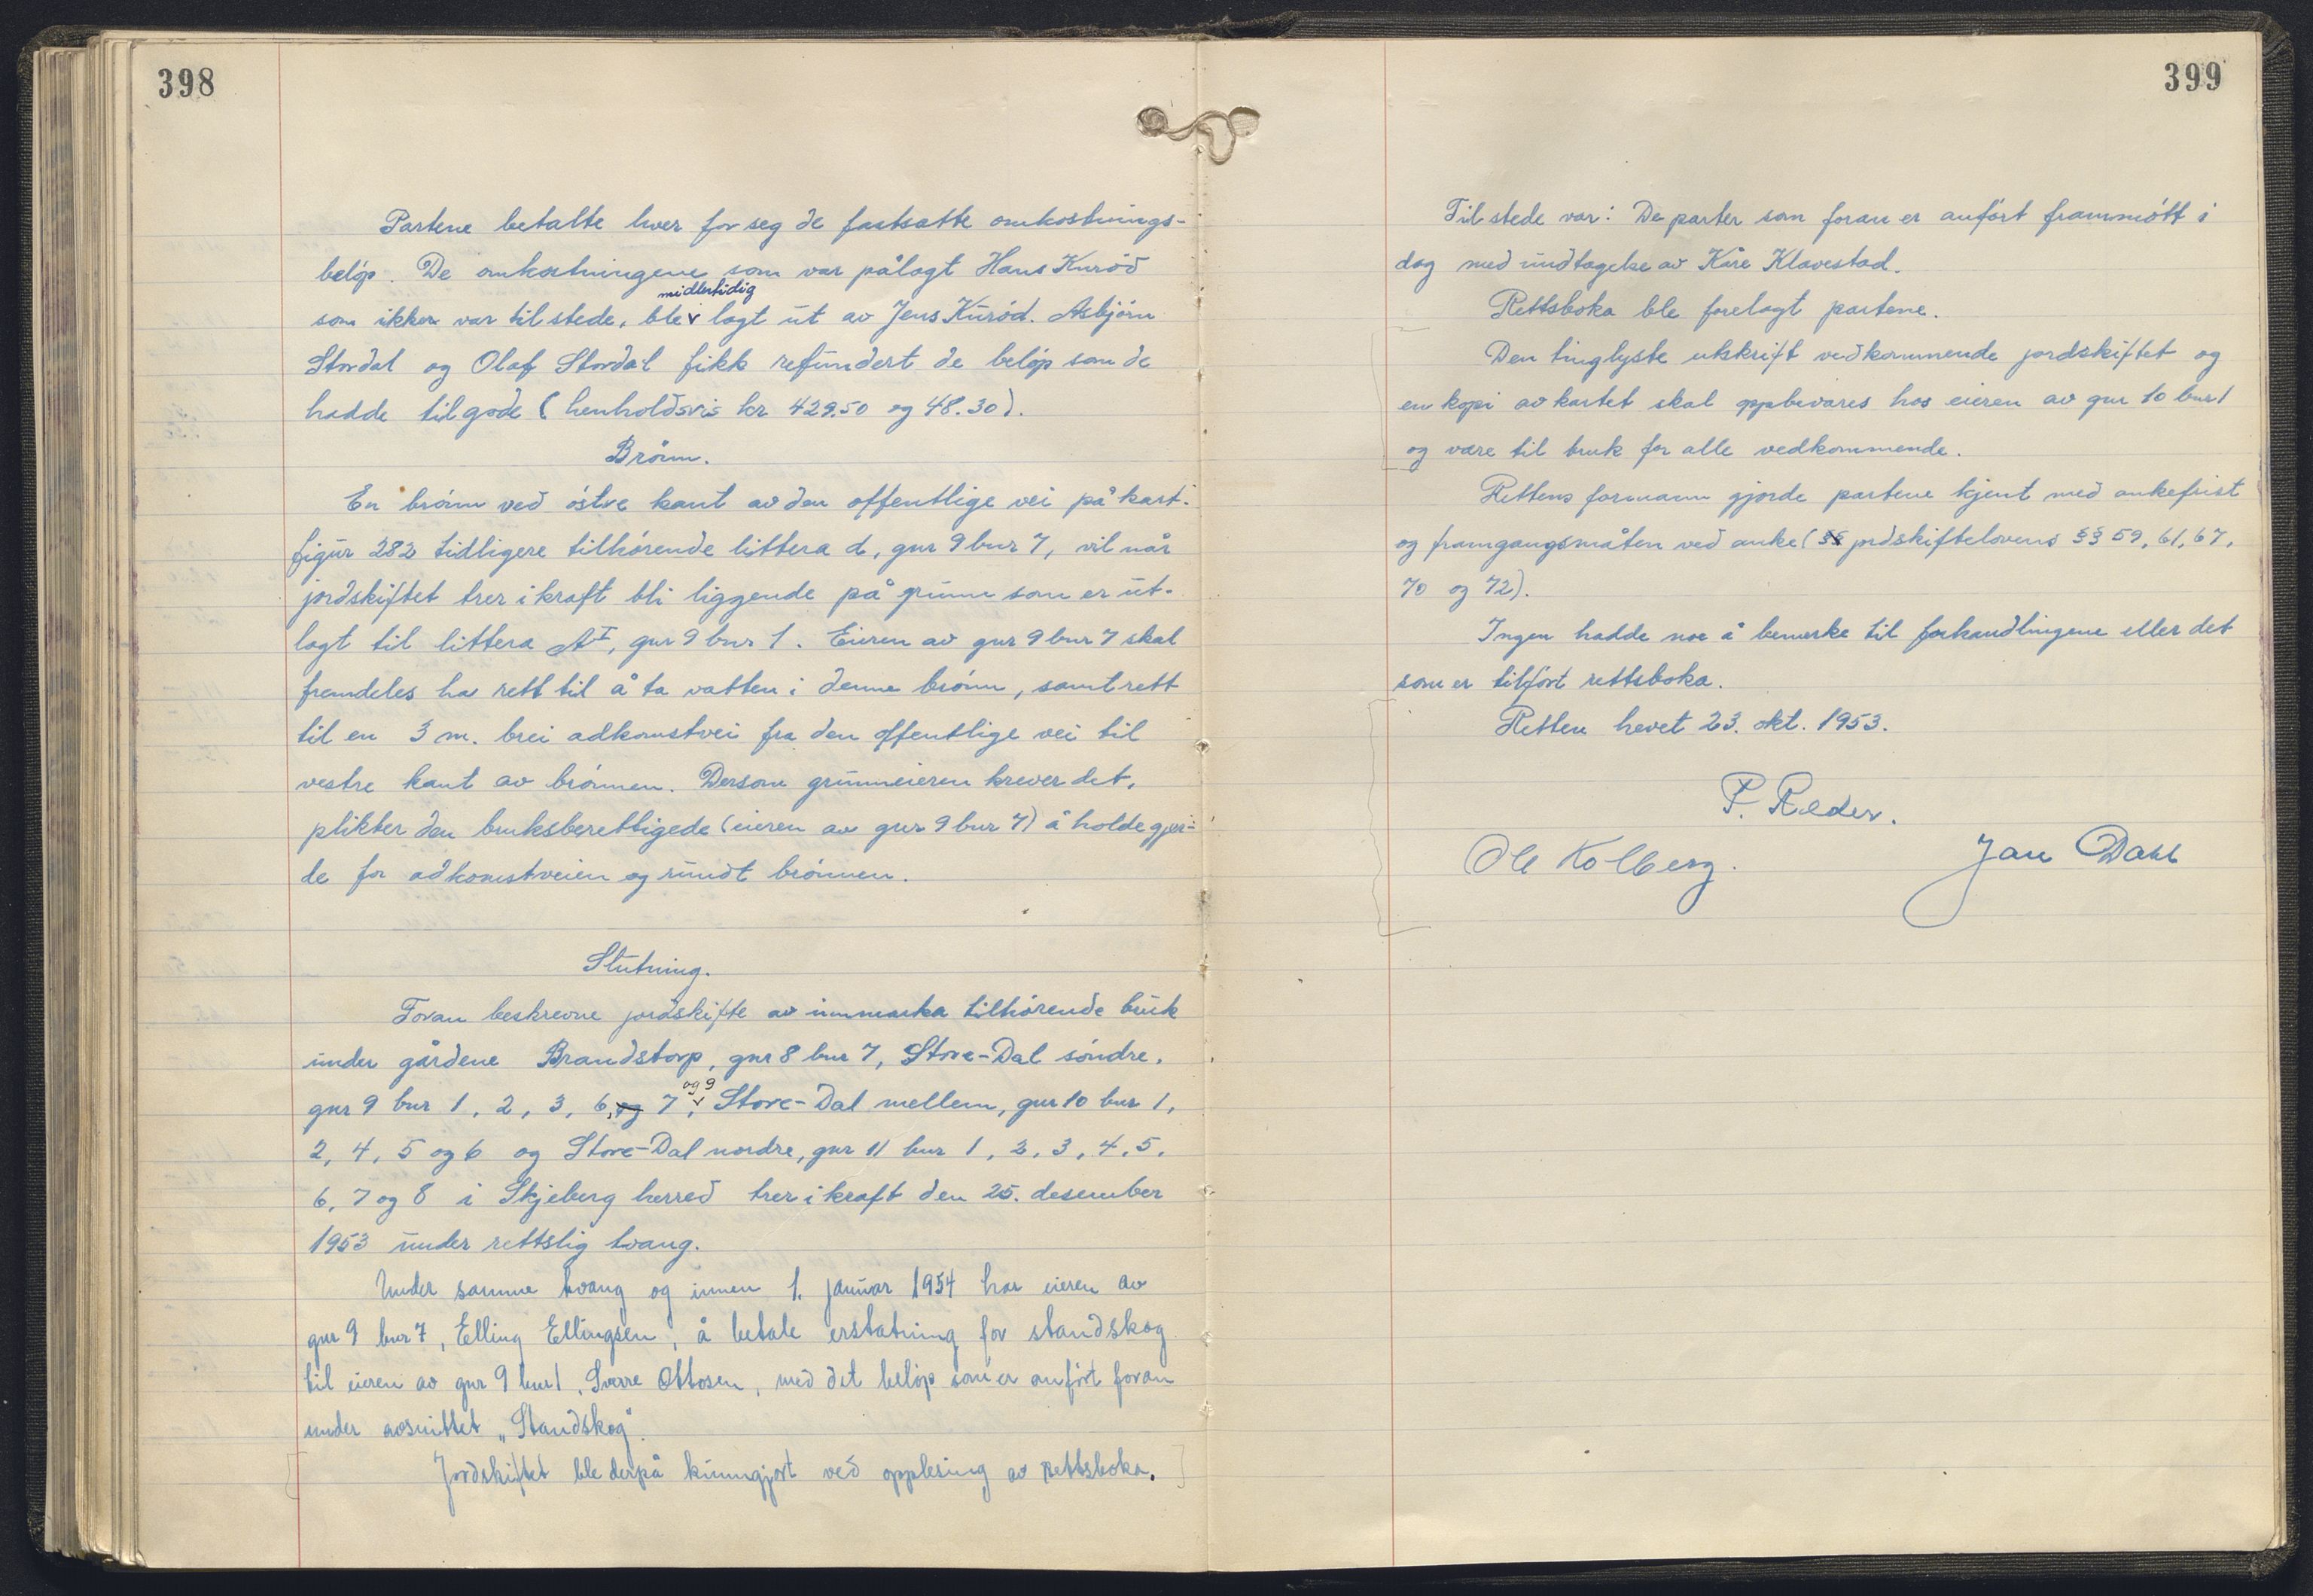 398
Partene betalte hver for seg de fastsatte omkostnings-
beløp. De omkostningene som var pålagt Hans Kurød
midlertidig
som ikke var til stede, ble lagt ut av Jens Kurød. Asbjørn
Stordal og Olaf Stordal fikk refundert de beløp som de
hadde tilgode (henholdsvis kr 429.50 og 48.30).
Brønn.
En brønn ved østre kant av den offentlige vei på kart-
figur 282 tidligere tilhørende littera d, gnr 9 bnr 7, vil når
jordskiftet trer i kraft bli liggende på grunn som er ut-
lagt til littera A I, gnr 9 bnr 1. Eieren av gnr 9 bnr 7 skal
fremdeles ha rett til å ta vatten i denne brønn, samt rett
til en 3 m. brei adkomstvei fra den offentlige vei til
vestre kant av brønnen. Dersom grunneieren krever det,
plikter den bruksberettigede (eieren av gnr 9 bnr 7) å holde gjer-
de for adkomstveien og rundt brønnen.
Slutning.
Foran beskrevne jordskifte av innmarka tilhørende bruk
under gårdene Brandstorp, gnr 8 bnr 7, Store-Dal søndre,
og 9
gnr 9 bnr 1, 2, 3, 6, og 7, Store-Dal mellem, gnr 10 bnr 1,
2, 4, 5 og 6 og Store-Dal nordre, gnr 11 bnr 1, 2, 3, 4, 5,
6, 7 og 8 i Skjeberg herred trer i kraft den 25. desember
1953 under rettslig tvang.
Under samme tvang og innen 1. januar 1954 har eieren av
gnr 9 bnr 7, Elling Ellingsen, å betale erstatning for standskog
til eieren av gnr 9 bnr 1, Sverre Ottosen, med det beløp som er anført foran
under avsnittet „Standskog".
[Jordskiftet ble derpå kunngjort ved opplesing av rettsboka.]
399
Til stede var: De parter som foran er anført frammøtt i
dag med undtagelse av Kåre Klavestad.
Rettsboka ble forelagt partene.
Den tinglyste utskrift vedkommende jordskiftet og
en kopi av kartet skal oppbevares hos eieren av gnr 10 bnr 1
og være til bruk for alle vedkommende.
Rettens formann gjorde partene kjent med ankefrist
og framgangsmåten ved anke (§§ jordskiftelovens §§ 59, 61, 67,
70 og 72).
Ingen hadde noe å bemerke til forhandlingene eller det
som er tilført rettsboka.
Retten hevet 23. okt. 1953.
P. Ræder.
Ole Kolberg. Jan Dahl